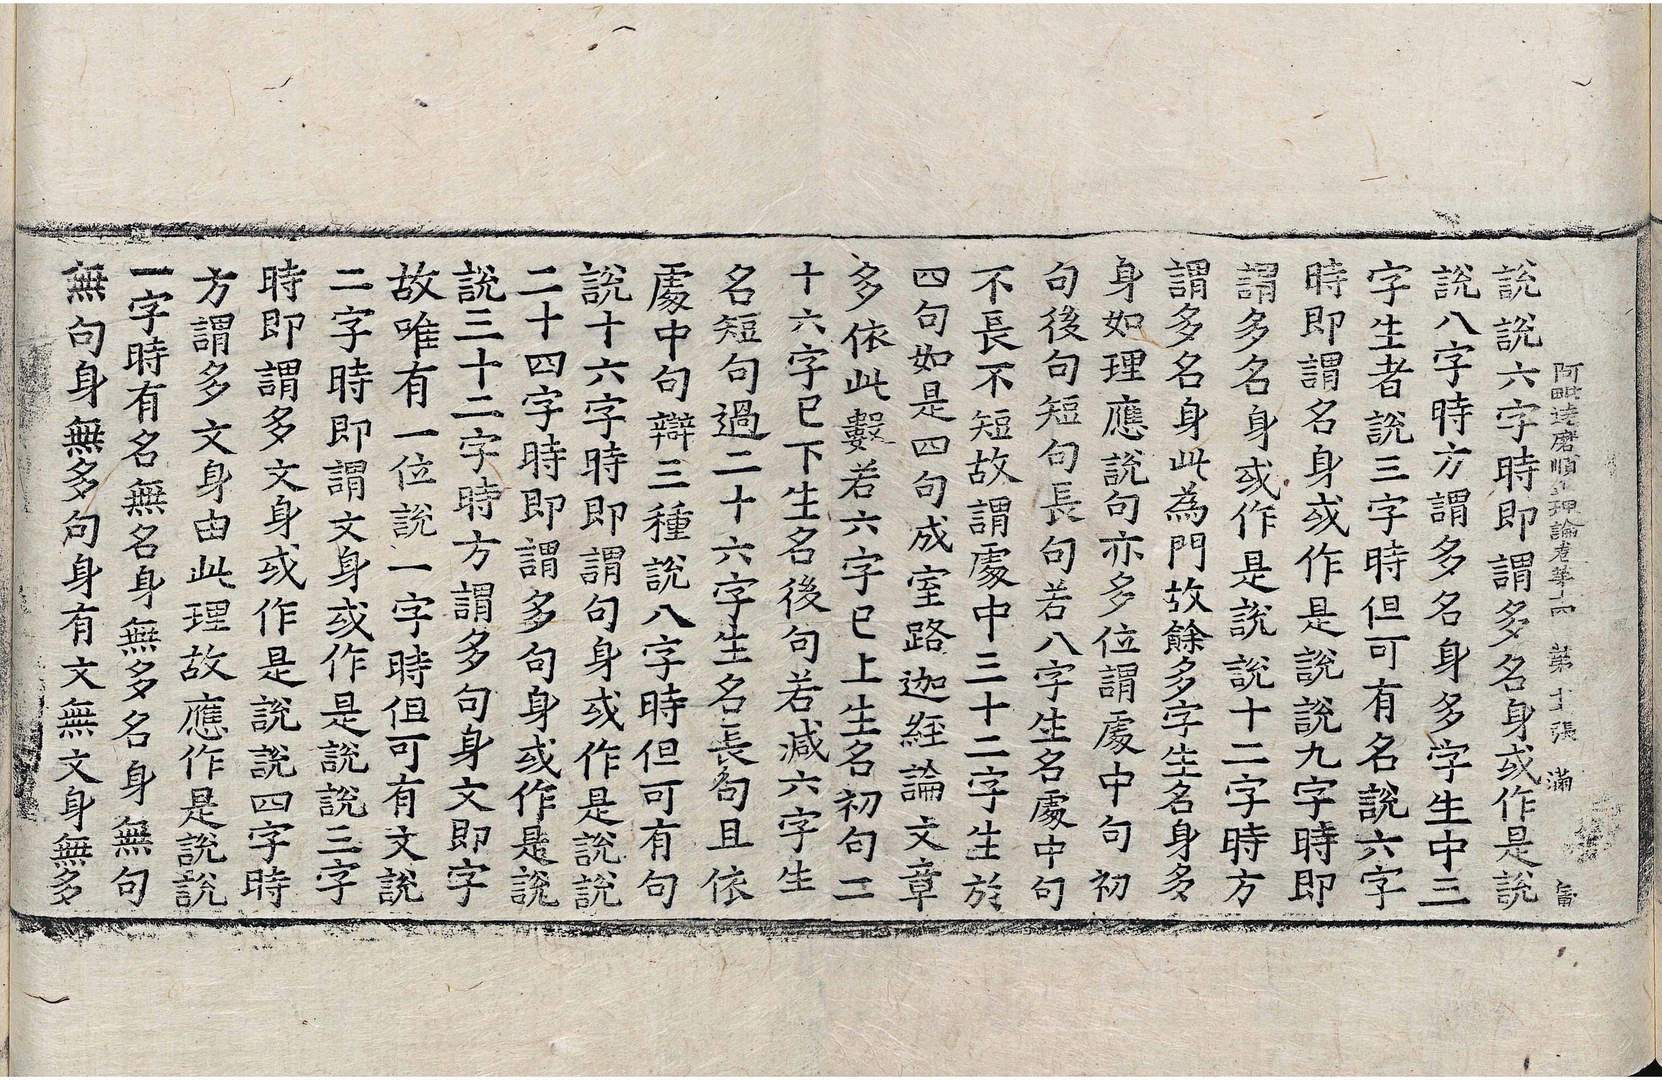 阿毗達磨順正理論卷第十四 第十五張 滿
說說六字時即謂多名身或作是說
說八字時方謂多名身多字生中三
字生者說三字時但可有名說六字
時即謂名身或作是說說九字時即
謂多名身或作是說說十二字時方
謂多名身此為門故餘多字生名身多
身如理應說句亦多位謂處中句初
句後句短句長句若八字生名處中句
不長不短故謂處中三十二字生於
四句如是四句成室路迦經論文章
多依此數若六字已上生名初句二
十六字已下生名後句若減六字生
名短句過二十六字生名長句且依
處中句辯三種說八字時但可有句
說十六字時即謂句身或作是說說
二十四字時即謂多句身或作是說
說三十二字時方謂多句身文即字
故唯有一位說一字時但可有文說
二字時即謂文身或作是說說三字
時即謂多文身或作是說說四字時
方謂多文身由此理故應作是說說
一字時有名無名身無多名身無句
無句身無多句身有文無文身無多